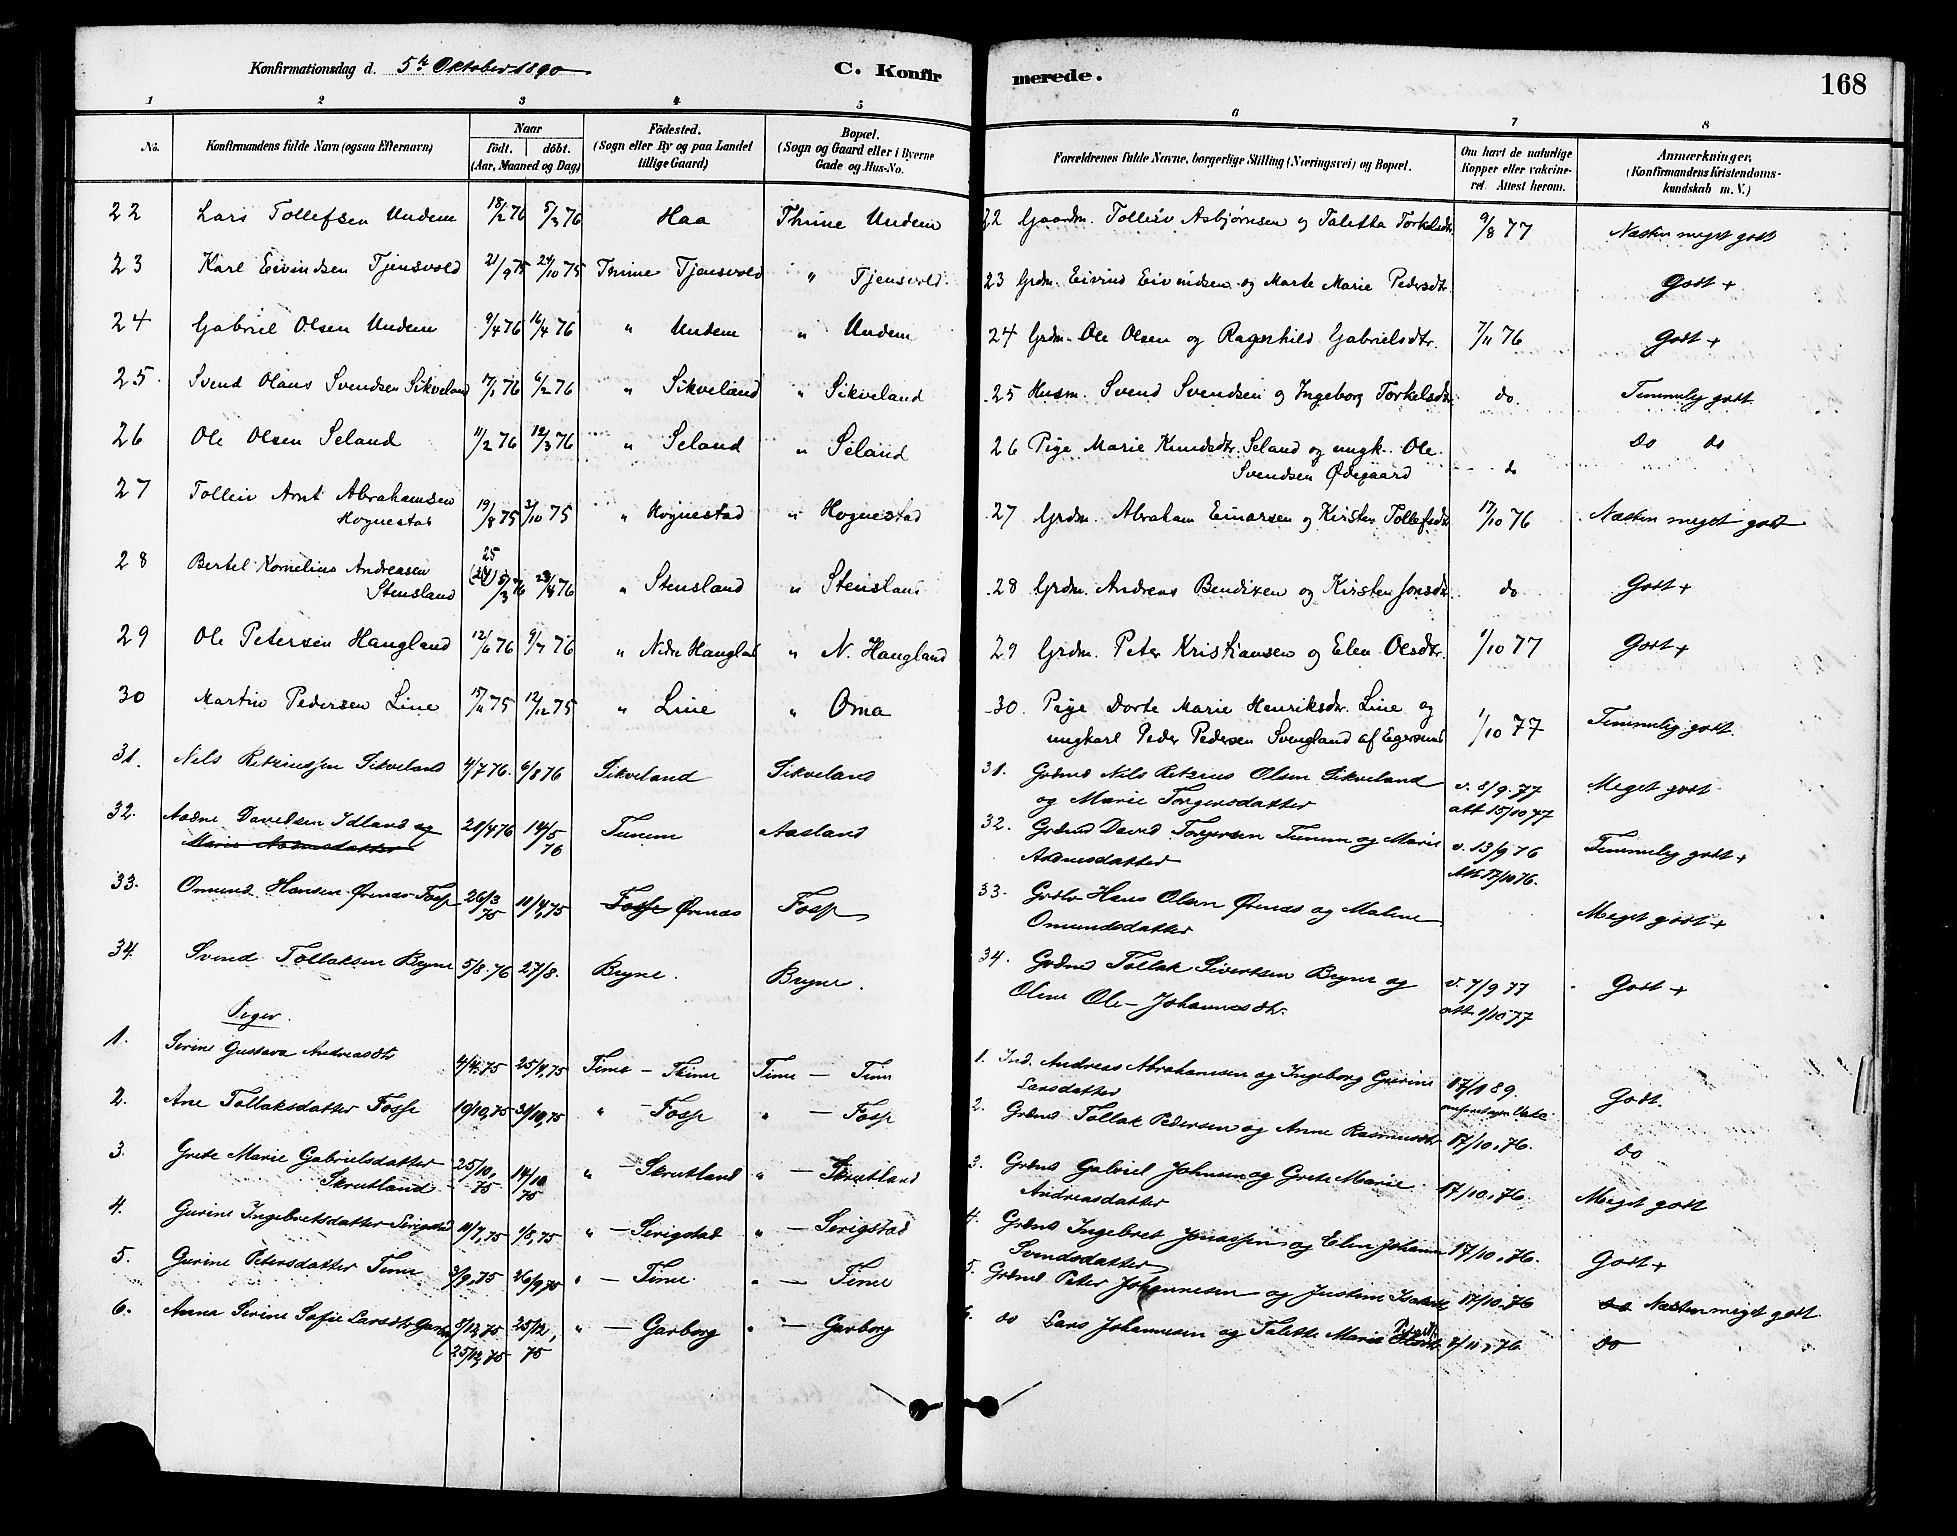 Konfirmationsdag d. 5te Oktober 1890
C. Konfir merede.
168
1 2 3 4 5 6 7 8
No. Konfirmandens fulde Navn (ogsaa Efternavn) Naar födt. döbt. (Aar, Maaned og Dag) Födested. (Sogn eller By og paa Landet tillige Gaard) Bopæl. (Sogn og Gaard eller i Byerne Gade og Hus-No. Forældrenes fulde Navne, borgerlige Stilling (Næringsvei) og Bopæl. Om havt de naturlige Kopper eller vakcineret. Attest herom. Anmærkninger. (Konfirmandens Kristendomskundskab m. V.)
22 Lars Tollefsen Undem 18/2 76 5/3 76 Haa Thime Undem 22 Gaardm. Tolleiv Asbjørnsen og Taletta Torkelsdtr. 9/8 77 Næsten meget godt
23 Karl Eivindsen Tjensvold 21/9 75 24/10 75 Thime Tjensvold " Tjensvold 23 Grdm. Eivind Eivindsen og Marte Marie Pedersdtr. Godt +
24 Gabriel Olsen Undem 9/4 76 16/4 76 " Undem " Undem 24 Grdm. Ole Olsen og Ragnhild Gabrielsdtr. 7/11 76 Godt +
25 Svend Olaus Svendsen Sikveland 17/1 76 6/2 76 " Sikveland " Sikveland 25 Husm. Svend Svendsen og Ingeborg Torkelsdtr. do Temmelig godt
26 Ole Olsen Seland 11/2 76 12/3 76 " Seland " Seland 26 Pige Marie Knudsdtr. Seland og ungk. Ole Svendsen Ødegaard do do do
27 Tolleiv Arnt Abrahamsen Hognestad 19/8 75 3/10 75 " Hognestad " Hognestad 27 Grdm. Abraham Einarsen og Kirsten Tollefsdtr 17/10 76 Næsten meget godt
28 Bertel Kornelius Andreasen Stensland 25 (24)/3 76 " Stensland " Stensland 28 Grdm. Andreas Bendixen og Kirsten Jonsdtr. do Godt +
29 Ole Petersen Haugland 12/6 76 9/7 76 " Nedre Haugland " N. Haugland 29 Grdm. Peter Kristiansen og Elen Olsdtr. 1/10 77 Godt +
30 Martin Pedersen Line 15/11 75 12/12 75 " Line " Oma 30. Pige Dorte Marie Henriksdtr. Line og ungkarl Peder Pedersen Svengland af Egersund 1/10 77 Temmelig godt.
31. Nils Retziussen Sikveland 4/7 76. 6/8 76 Sikveland Sikveland 31. Grdmd Nils Retzius Olsen Sikveland og Marie Torgersdatter v. 8/9 77 att 15/10 77 Meget godt
32. Aadne Davidsen Idland og Marie Aadnesdatter 20/4 76 14/5 76 Tunem Aasland 32. Grdmd David Torgersen Tunem og Marie Aadnesdatter v. 13/9 76 Att 17/10 76. Temmelig godt +
33. Omund Hansen Ørnæs Fosse 26/3 75 11/4, 75 Fosse Ørnæs Fosse 33. Hans Olsen Ørnæs og Malene Omundsdatter Meget godt +
34. Svend Tollaksen Bryne 5/8. 76 27/8. Bryne. Bryne. 34. Grdmd Tollak Sivertsen Bryne og Oline Ole-Johannesdtr. v. 7/9 77 att 1/10 77 Godt +
Piger.
1. Serine Gustava Andreasdtr 4/4. 75 25/4, 75 Time - Thime Time - Time 1. Ind. Andreas Abrahamsen og Ingeborg Gurine Larsdatter 17/1 89. Godt.
2. Ane Tollaksdatter Fosse 19/10, 75 31/10, 75 " - Fosse " - Fosse 2. Grdmd Tollak Pedersen og Anne Rasmusdtr 17/10, 76. do
3. Grete Marie Gabrielsdatter Skrutland 25/10, 75 14/10 75 " - Skrutland " - Skrutland 3. Grdmd Gabriel Johnsen og Grete Marie Andreasdatter 17/10, 76. Meget godt
4. Gurine Ingebretsdatter Serigstad 11/7, 75 1/8, 75 " - Serigstad " - Serigstad 4. Grdmd Ingebret Jonassen og Elen Johanna Svendsdatter 17/10, 76. Godt +
5. Gurine Petersdatter Time 3/9, 75 26/9, 75 " - Time. " - Time 5. Grdmd Peter Johannesen og Justine Isaksdtr 17/10, 76 do Næsten meget godt
6. Anna Serine Sofie Larsdtr Garborg 3/12, 75 25/12, 75 25/12, 75 " - Garborg " - Garborg 6. do Lars Johannesen og Talette Marie 7/11, 76 do